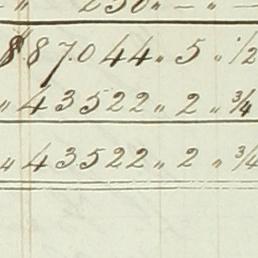 250 „ — „ —
87044 „ 5 „ 1/2
„ 43522 „ 2 „ 3/4
„ 43522 „ 2 „ 3/4